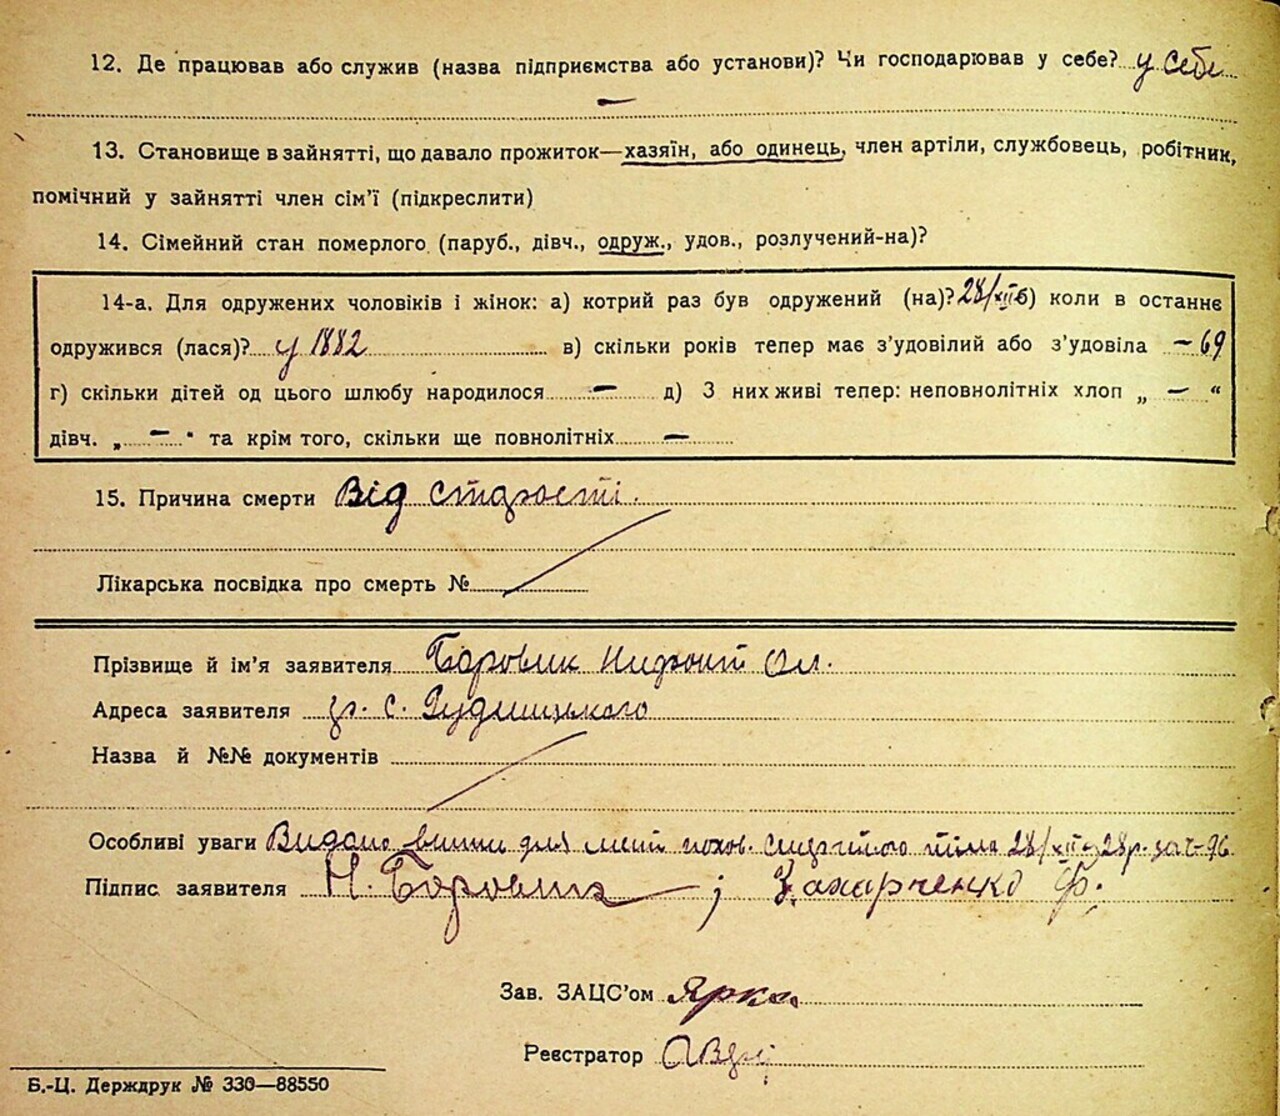 12. Де працював або служив (назва підприємства або установи)? Чи господарював у себе? у себе
—
13. Становище в зайнятті, що давало прожиток—хазяїн, або одинець, член артіли, службовець, робітник,
помічний у зайнятті член сім'ї (підкреслити)
14. Сімейний стан померлого (паруб., дівч., одруж., удов., розлучений-на)?
14-а. Для одружених чоловіків і жінок: а) котрий раз був одружений (на)? 28/XII б) коли в останнє
одружився (лася)? у 1882 в) скільки років тепер має з'удовілий або з'удовіла — 69
г) скільки дітей од цього шлюбу народилося — д) З них живі тепер: неповнолітніх хлоп „ — “
дівч. „ — “ та крім того, скільки ще повнолітніх —
15. Причина смерти Від старости.
Лікарська посвідка про смерть №
Прізвище й ім'я заявителя Боровик Нифонт Ол.
Адреса заявителя гр. с. Рудницького
Назва й №№ документів
Особливі уваги Видано для похов. тіла 28/XII-28р. за ч-96
Підпис заявителя Н. Боровик ; Захарченко Ф.
Зав. ЗАЦС'ом
Реєстратор
Б.-Ц. Держдрук № 330—88550